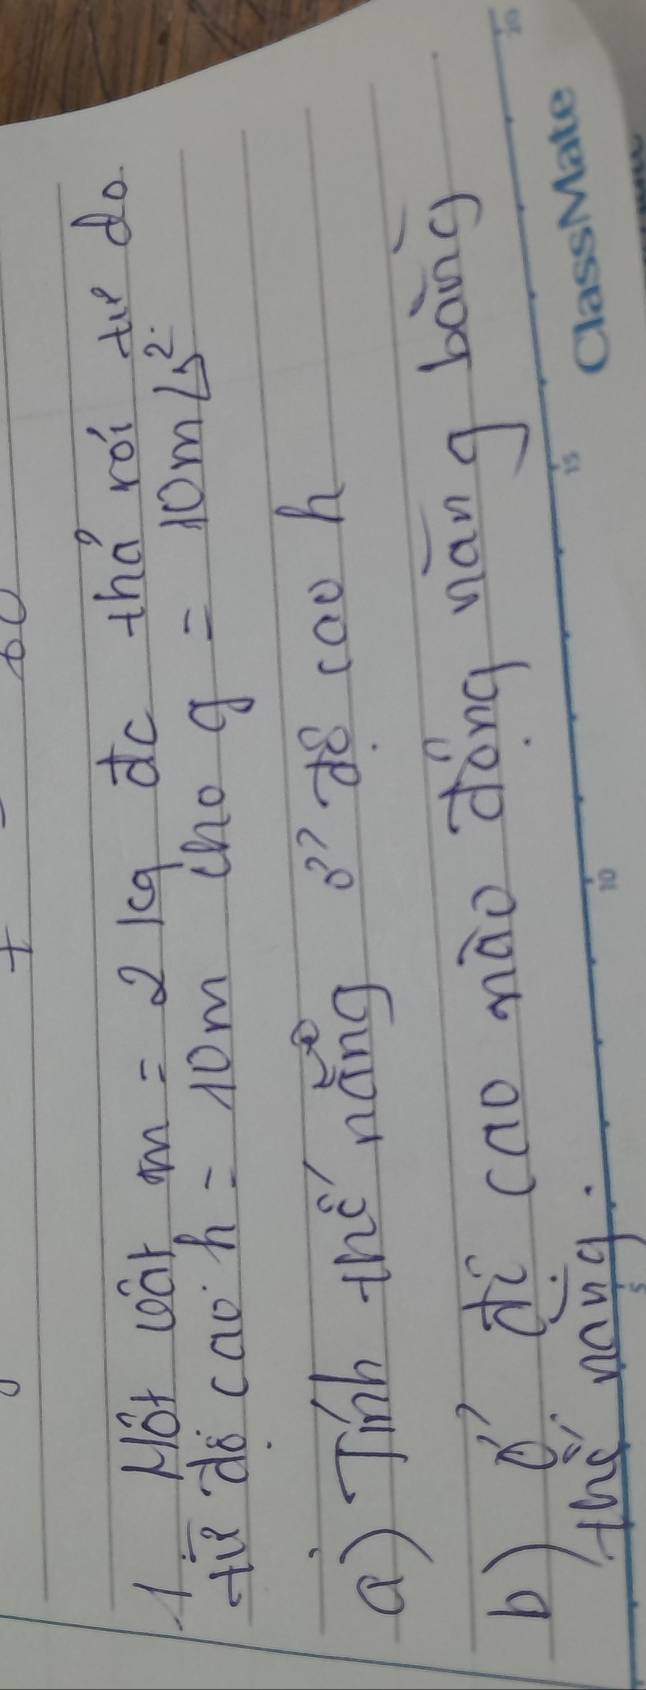 1 Một vật m = 2 kg đc thả rơi tự do
từ độ cao h = 10m cho g = 10m/s²
a) Tính thế năng ở độ cao h
b) Ở độ cao nào động năng bằng
thế năng.
5 10 15 20
ClassMate